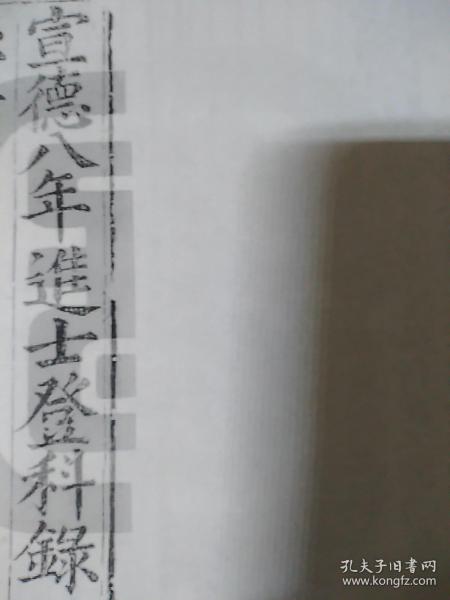 宣德八年進士登科錄
孔夫子旧书网
www.kongfz.com